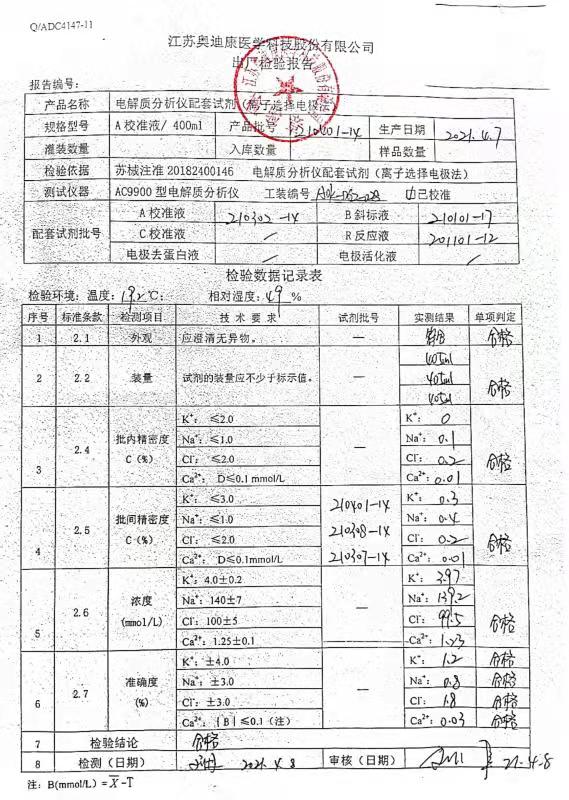 Q/ADC4147-11
江苏奥迪康医学科技股份有限公司
出厂检验报告
报告编号:
产品名称 电解质分析仪配套试剂（离子选择电极法）
规格型号 A校准液/ 400ml 产品批号 210401-14 生产日期 2021.4.7
准装数量 入库数量 样品数量
检验依据 苏械注准 20182400146 电解质分析仪配套试剂（离子选择电极法）
测试仪器 AC9900 型电解质分析仪 工装编号 已校准
配套试剂批号 A 校准液 210302-14 B 斜标液 210101-17
C 校准液 / R 反应液 201101-12
电极去蛋白液 / 电极活化液 /
检验数据记录表
检验环境: 温度: 19.2 ℃; 相对湿度: 49 %
序号 标准条款 检测项目 技 术 要 求 试剂批号 实测结果 单项判定
1 2.1 外观 应澄清无异物。 — 合格
2 2.2 装量 试剂的装量应不少于标示值。 — 401ml 401ml 401ml 合格
3 2.4 批内精密度 C（%） — 合格
K⁺: ≤2.0 K⁺: 0
Na⁺: ≤1.0 Na⁺: 0.1
Cl⁻: ≤2.0 Cl⁻: 0.2
Ca²⁺: D≤0.1 mmol/L Ca²⁺: 0.01
4 2.5 批间精密度 C（%） 合格
K⁺: ≤3.0 210401-14 K⁺: 0.3
Na⁺: ≤1.0 210308-14 Na⁺: 0.4
Cl⁻: ≤2.0 210307-14 Cl⁻: 0.2
Ca²⁺: D≤0.1mmol/L Ca²⁺: 0.01
5 2.6 浓度 (mmol/L) — 合格
K⁺: 4.0±0.2 K⁺: 3.97
Na⁺: 140±7 Na⁺: 139.2
Cl⁻: 100±5 Cl⁻: 99.5
Ca²⁺: 1.25±0.1 Ca²⁺: 1.23
6 2.7 准确度 (%) —
K⁺: ±4.0 K⁺: 1.2 合格
Na⁺: ±3.0 Na⁺: 0.8 合格
Cl⁻: ±3.0 Cl⁻: 1.8 合格
Ca²⁺: |B|≤0.1（注） Ca²⁺: 0.03 合格
7 检验结论 合格
8 检测（日期） 2021.4.8 审核（日期） 21.4.8
注: B(mmol/L) = X̄-T